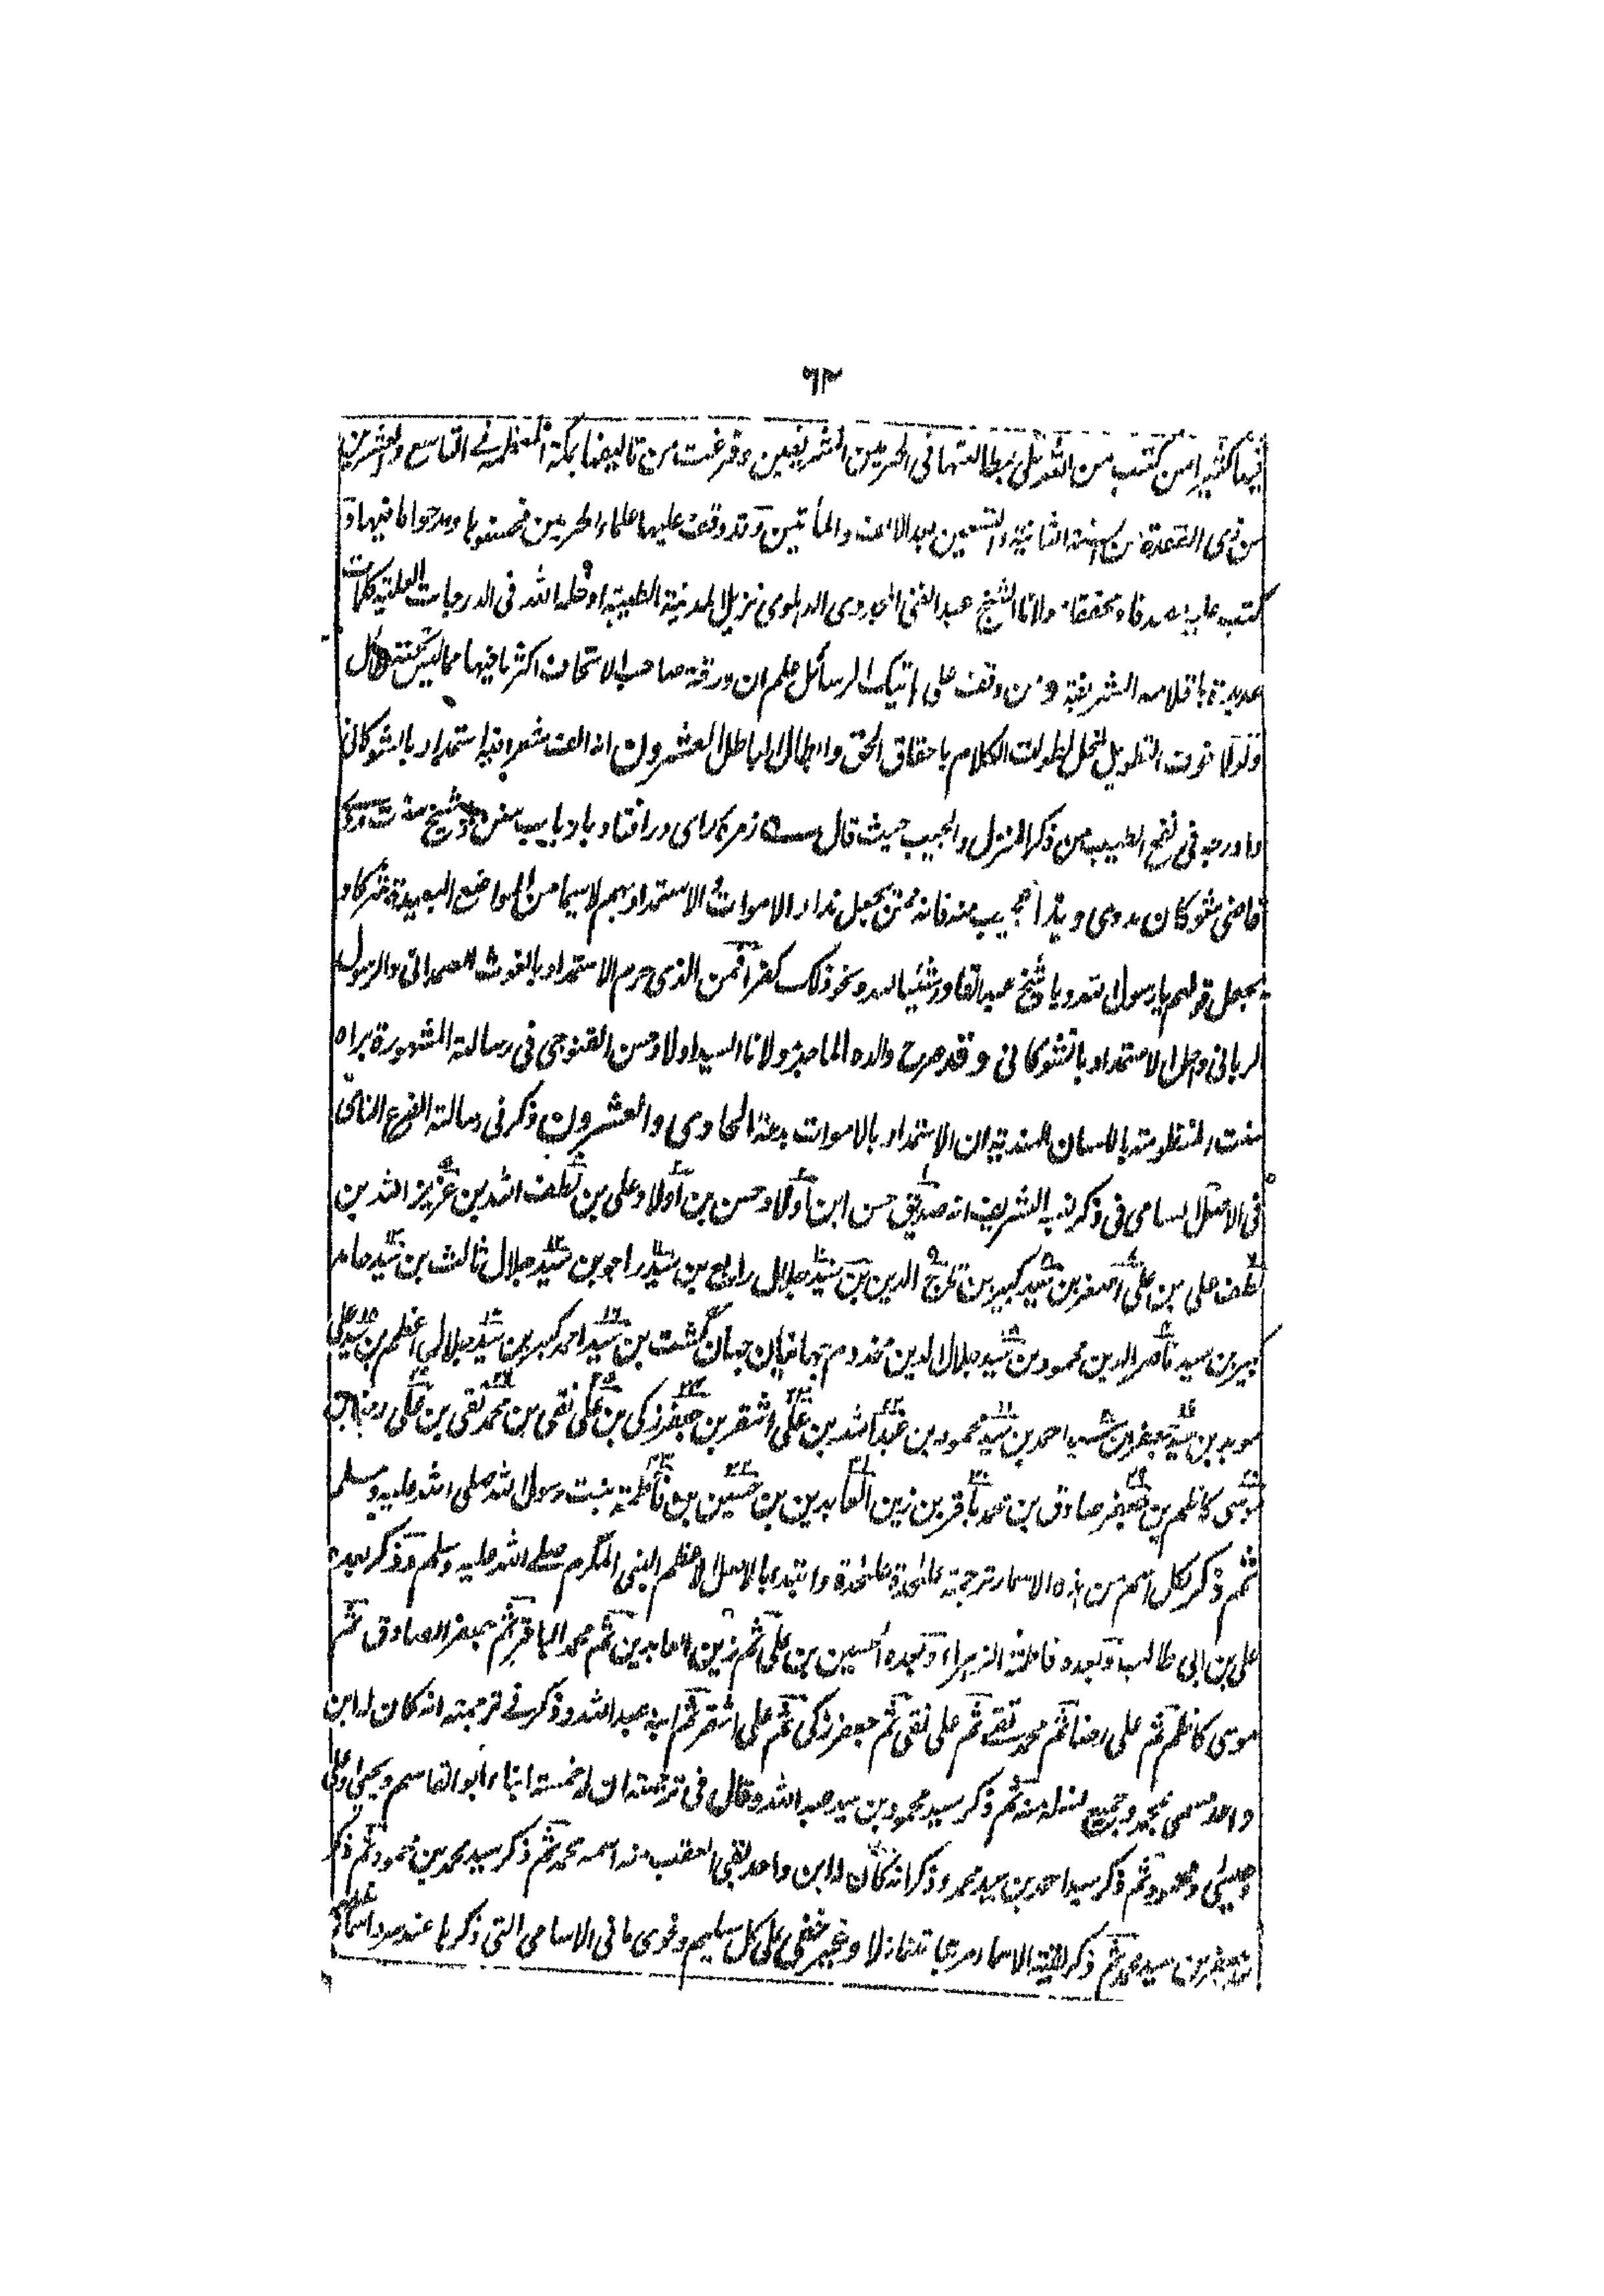 ٦٢
فيها كثيرا من كتب من الله على بمطالعتها فى الحرمين الشريفين وفرغت من تاليفها بمكة المعظمة فى التاسع والعشرين
من ذى القعدة من السنة الثانية والتسعين بعد الالف والمأتين وقد وقف عليها علماء الحرمين فحسنوها ومدحوا ما فيها و
كتب عليها مولانا الشيخ عبد الغنى المجددى الدهلوى نزيل المدينة الطيبة ادخله الله فى الدرجات العلية كلمات
عديدة باقلامه الشريفة ومن وقف على تيك الرسائل علم ان ورقة صاحب الاتحاف اكثر ما فيها مما ليس
ولولا خوف التطويل المخل لطولت الكلام باحقاق الحق وابطال الباطل العشرون انه الف شعرا فيه استمداد بالشوكانى
واورده فى نفح الطيب من ذكر المنزل والحبيب حيث قال زمرهٔ رای در افتاد بارباب سنن شیخ سنت مددی
قاضى شوكان مددى وهذا عجيب منه فانه ممن يجعل نداء الاموات والاستمداد بهم لاسيما من المواضع البعيدة شركا و
يجعل قولهم يا رسول الله ويا شيخ عبد القادر شيئا لله ونحو ذلك كفرا فمن الذى حرم الاستمداد بالغوث الصمدانى والرسول
الربانى وحلل الاستمداد بالشوكانى وقد صرح والده الماجد مولانا السيد اولاد حسن القنوجى فى رسالته المشهورة براه
سنت المنظومة باللسان الهندية ان الاستمداد بالاموات بدعة الحادى والعشرون ذكر فى رسالته الفرع النامى
فى الاصل السامى فى ذكر نسبه الشريف انه صديق حسن ابن اولاد حسن بن اولاد على بن لطف الله بن عزيز الله بن
لطف على بن على اصغر بن سيد كبير بن تاج الدين بن سيد جلال رابع بن سيد راجو بن سيد جلال ثالث بن سيد حامد
كبير بن سيد ناصر الدين محمود بن سيد جلال الدين مخدوم جهانيان جهان گشت بن سيد احمد كبير بن سيد جلال اعظم بن سيد على
مويد بن سيد جعفر بن سيد احمد بن سيد محمود بن عبد الله بن على اشقر بن جعفر زكى بن على نقى بن محمد تقى بن على رضا بن
موسى كاظم بن جعفر صادق بن محمد باقر بن زين العابدين بن حسين بن فاطمة بنت رسول الله صلى الله عليه وسلم
ثم ذكر لكل اسم من هذه الاسماء ترجمة علىحدة علىحدة وابتدء بالاصل الاعظم النبى المكرم صلے الله عليه وسلم وذكر بعده
على بن ابى طالب وبعده فاطمة الزهراء وبعده الحسين بن على ثم زين العابدين ثم محمد الباقر ثم جعفر الصادق ثم
موسى كاظم ثم على رضا ثم محمد تقى ثم على نقى ثم جعفر زكى ثم على اشقر ثم ابنه عبد الله وذكر فى ترجمته انه كان له ابن
واحد مسمى بمحمد وجميع نسله منه ثم ذكر سيد محمود بن سيد عبد الله وقال فى ترجمته ان له خمسة ابناء ابو القاسم ويحيى وعلى
وعيسى ومحمود ثم ذكر سيد احمد بن سيد محمد وذكر انه كان له ابن واحد بقى العقب منه اسمه محمد ثم ذكر سيد محمد بن محمود ثم ذكر
سيد جعفر بن سيد محمد ثم ذكر بقية الاسماء مرتبا متنازلا وغير خفى على كل سليم وغوى ما فى الاسامى التى ذكرها عند سرد